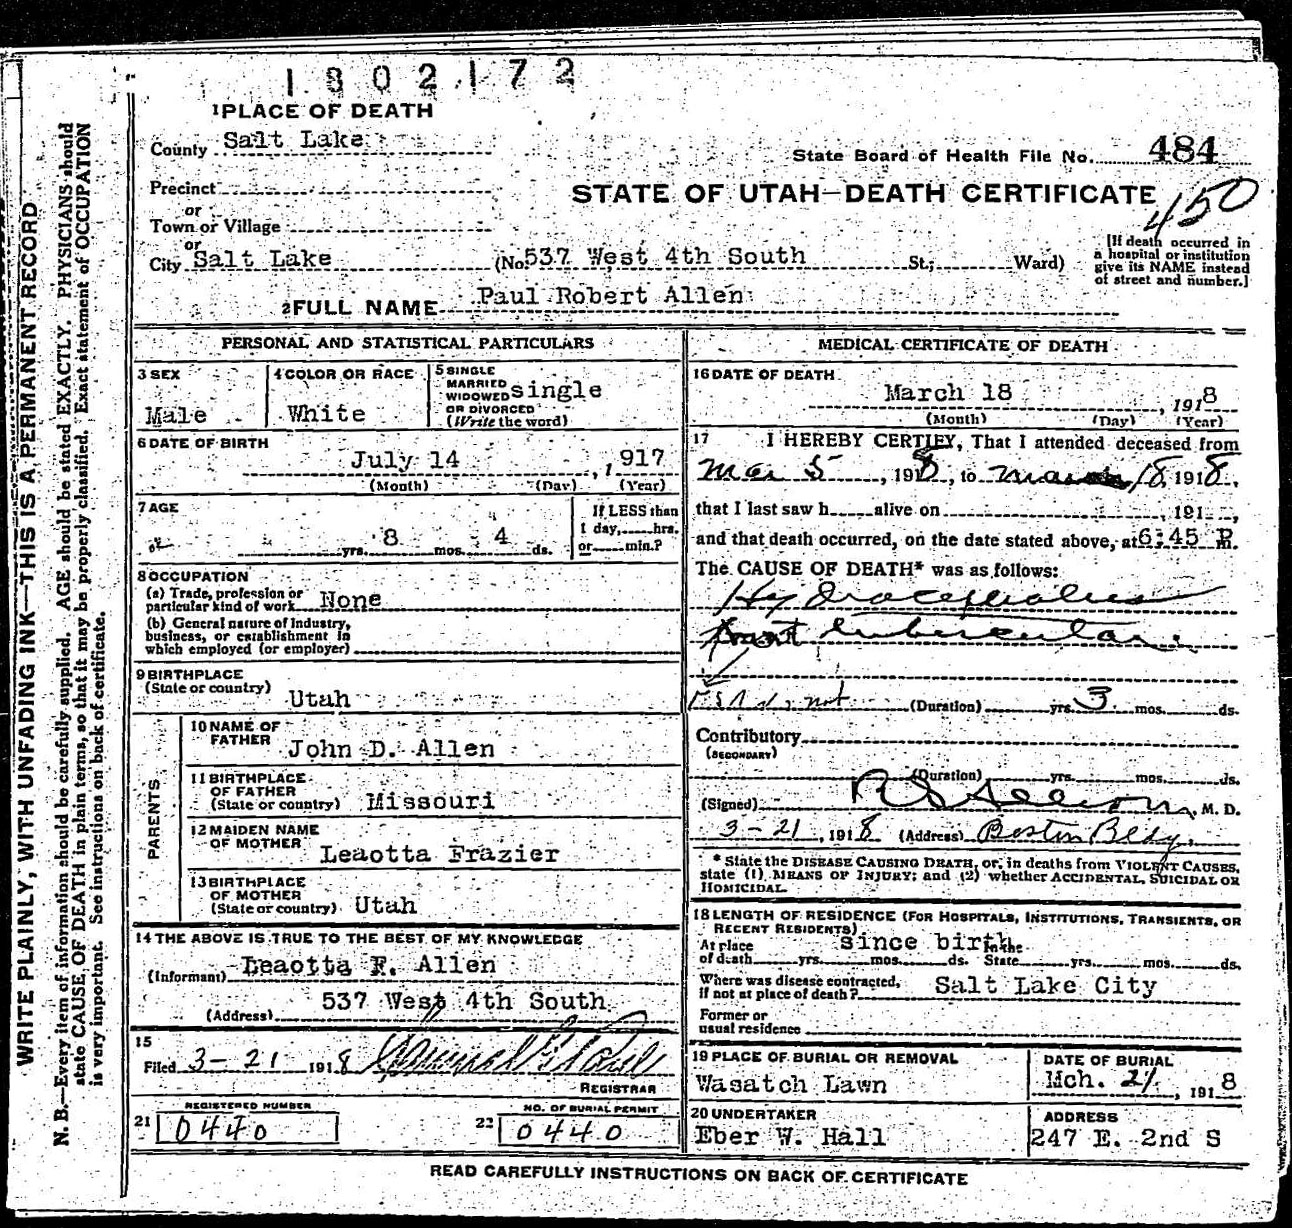 1802172
1 PLACE OF DEATH
County Salt Lake
State Board of Health File No. 484
Precinct
STATE OF UTAH—DEATH CERTIFICATE
450
or
Town or Village
or
City Salt Lake (No. 537 West 4th South St.; Ward)
[If death occurred in
a hospital or institution
give its NAME instead
of street and number.]
2 FULL NAME Paul Robert Allen
PERSONAL AND STATISTICAL PARTICULARS
3 SEX
Male
4 COLOR OR RACE
White
5 SINGLE
MARRIED
WIDOWED
OR DIVORCED
(Write the word)
single
6 DATE OF BIRTH
July 14, 1917
(Month) (Day) (Year)
7 AGE
yrs. 8 mos. 4 ds.
If LESS than
1 day, hrs.
or min.?
8 OCCUPATION
(a) Trade, profession or
particular kind of work None
(b) General nature of industry,
business, or establishment in
which employed (or employer)
9 BIRTHPLACE
(State or country) Utah
PARENTS
10 NAME OF
FATHER John D. Allen
11 BIRTHPLACE
OF FATHER
(State or country) Missouri
12 MAIDEN NAME
OF MOTHER Leaotta Frazier
13 BIRTHPLACE
OF MOTHER
(State or country) Utah
14 THE ABOVE IS TRUE TO THE BEST OF MY KNOWLEDGE
(Informant) Leaotta F. Allen
537 West 4th South
(Address)
15
Filed 3-21 1918
REGISTRAR
REGISTERED NUMBER
21 0440
NO. OF BURIAL PERMIT
22 0440
MEDICAL CERTIFICATE OF DEATH
16 DATE OF DEATH
March 18, 1918
(Month) (Day) (Year)
17 I HEREBY CERTIFY, That I attended deceased from
Mar 5, 1918, to 18, 1918,
that I last saw h alive on 191 ,
and that death occurred, on the date stated above, at 6:45 P. m.
The CAUSE OF DEATH* was as follows:
Hydrocephalus
tubercular
not (Duration) yrs. 3 mos. ds.
Contributory
(SECONDARY)
(Duration) yrs. mos. ds.
(Signed) M. D.
3-21, 1918 (Address) Boston Bldg.
* State the DISEASE CAUSING DEATH, or, in deaths from VIOLENT CAUSES,
state (1) MEANS OF INJURY; and (2) whether ACCIDENTAL, SUICIDAL OR
HOMICIDAL.
18 LENGTH OF RESIDENCE (FOR HOSPITALS, INSTITUTIONS, TRANSIENTS, OR
RECENT RESIDENTS)
since birth
At place In the
of death yrs. mos. ds. State yrs. mos. ds.
Where was disease contracted,
if not at place of death? Salt Lake City
Former or
usual residence
19 PLACE OF BURIAL OR REMOVAL
Wasatch Lawn
DATE OF BURIAL
Mch. 21, 1918
20 UNDERTAKER
Eber W. Hall
ADDRESS
247 E. 2nd S
READ CAREFULLY INSTRUCTIONS ON BACK OF CERTIFICATE
WRITE PLAINLY, WITH UNFADING INK—THIS IS A PERMANENT RECORD
N. B.—Every item of information should be carefully supplied. AGE should be stated EXACTLY. PHYSICIANS should
state CAUSE OF DEATH in plain terms, so that it may be properly classified. Exact statement of OCCUPATION
is very important. See instructions on back of certificate.